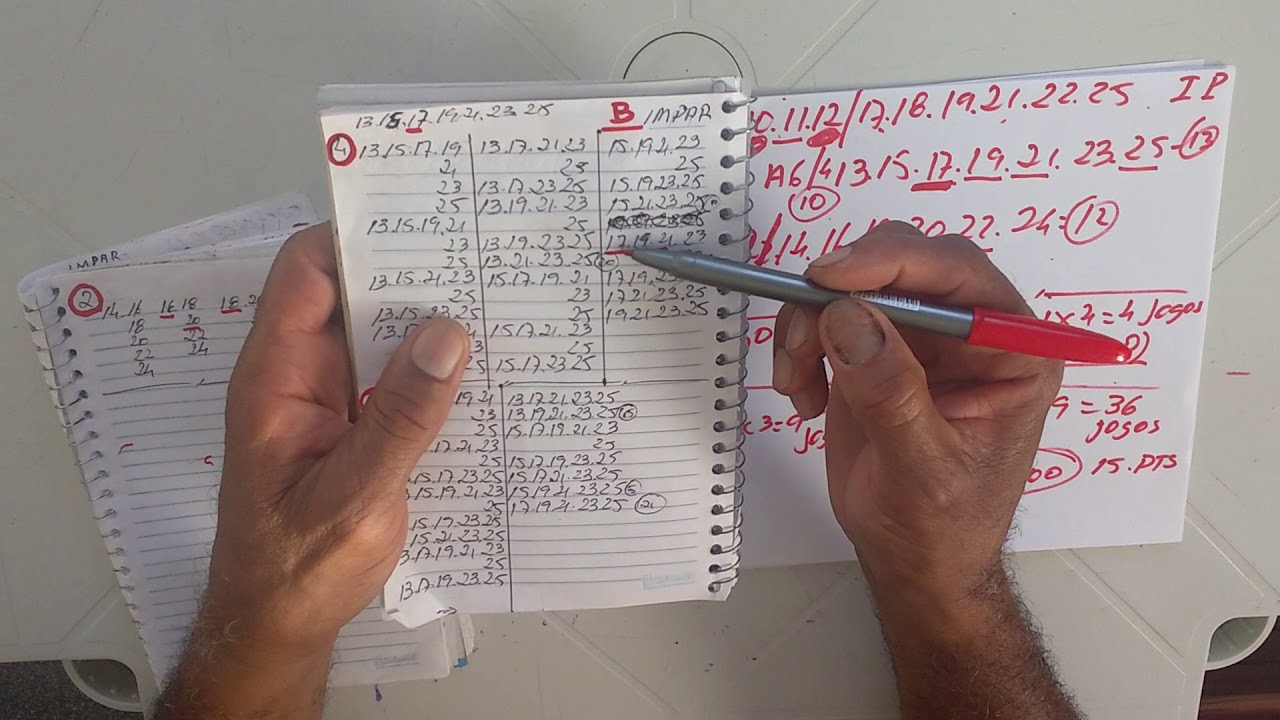 13.15.17.19.21.23.25
B IMPAR
4
13.15.17.19
21
23
25
13.15.19.21
23
25
13.15.21.23
25
13.15.23.25
13.17.21.23
25
13.17.23.25
13.19.21.23
25
13.19.23.25
13.21.23.25
15.17.19.21
23
25
15.17.21.23
25
15.17.23.25
15.19.21.23
25
15.19.23.25
15.21.23.25
17.19.21.23
17.19.23
17.21.23.25
19.21.23.25
19.21
23
25
17.21.23
25
15.17.23.25
15.19.21.23
25
15.19.23.25
15.21.23.25
3.17.19.21.23
25
13.17.19.23.25
13.17.21.23.25
13.19.21.23.25 6
15.17.19.21.23
25
15.17.19.23.25
15.17.21.23.25
15.19.21.23.25 6
17.19.21.23.25 21
IMPAR
2
14.16
18
20
22
24
16.18
20
22
24
18.20
0.11.12/17.18.19.21.22.25 IP
A6/4 13.15.17.19.21.23.25-13
10
14.16
20.22.24=12
1x4=4 jogos
x3=9
9=36
jogos
15.PTS